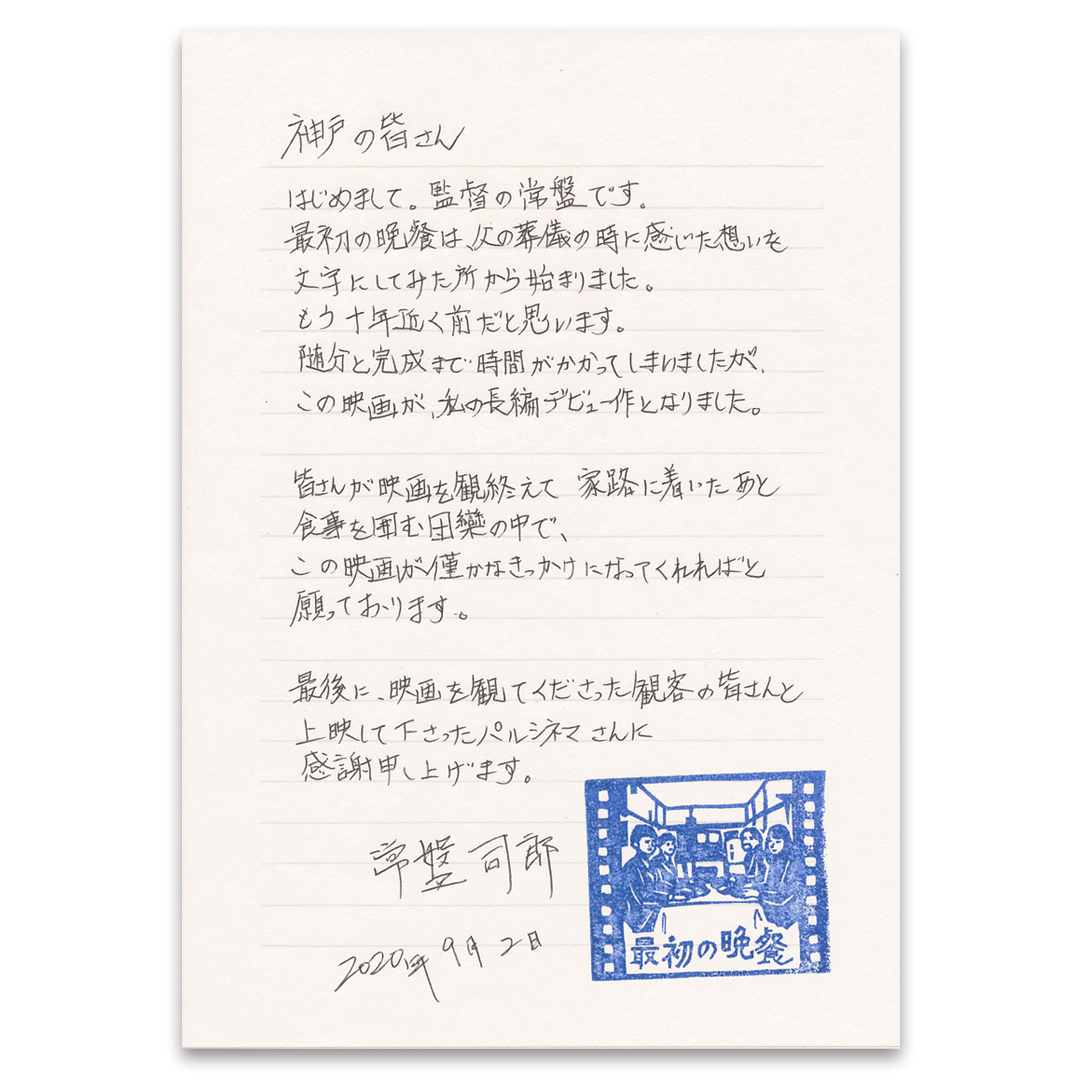 神戸の皆さん
はじめまして。監督の常盤です。
最初の晩餐は、父の葬儀の時に感じた想いを
文字にしてみた所から始まりました。
もう十年近く前だと思います。
随分と完成まで時間がかかってしまいましたが、
この映画が、私の長編デビュー作となりました。
皆さんが映画を観終えて 家路に着いたあと
食事を囲む団欒の中で、
この映画が僅かなきっかけになってくれればと
願っております。
最後に、映画を観てくださった観客の皆さんと
上映して下さったパルシネマさんに
感謝申し上げます。
常盤司郎
2020年9月2日
最初の晩餐